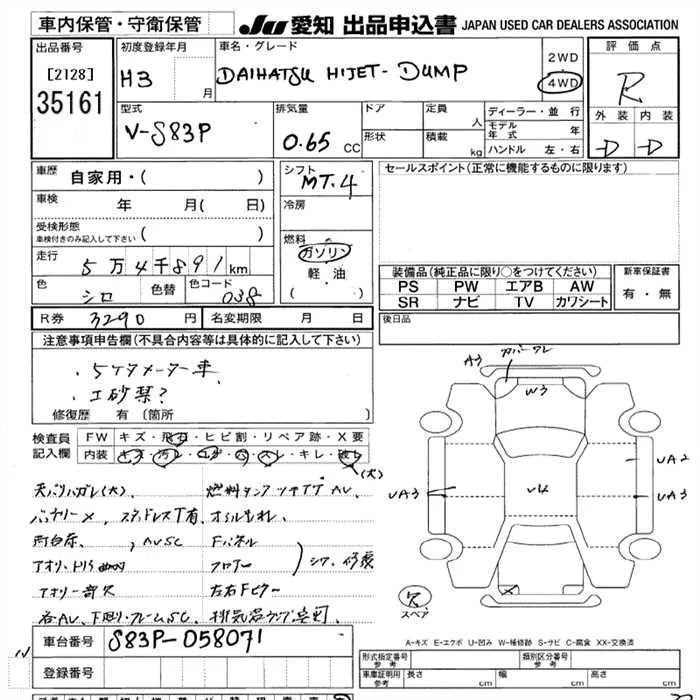 車内保管・守衛保管
JU 愛知 出品申込書 JAPAN USED CAR DEALERS ASSOCIATION
出品番号
[2128]
35161
初度登録年月
H3 月
車名・グレード
DAIHATSU HIJET- DUMP
2WD
4WD
評価点
R
外装 内装
D D
型式
V-S83P
排気量
0.65 CC
ドア
形状
定員 人
積載 kg
ディーラー・並行
モデル年式 年
ハンドル 左・右
車歴 自家用・( )
車検 年 月( 日)
受検形態
車検付きのみ記入して下さい ( )
走行 5万4千891km
色 シロ 色替 色コード 038
シフト
MT.4
冷房
燃料
ガソリン
軽油
( )
セールスポイント(正常に機能するものに限ります)
装備品(純正品に限り○をつけてください)
PS PW エアB AW
SR ナビ TV カワシート
新車保証書
有・無
R券 3290 円 名変期限 月 日
後日品
注意事項申告欄(不具合内容等は具体的に記入して下さい)
・5ケタメーター車
修復歴 有 (箇所 )
検査員記入欄
FW キズ・飛石・ヒビ割・リペア跡・X要
内装 キズ・汚レ・コゲ・穴・スレ・キレ・破レ
(大)
天バリハガレ(大)
燃料タンク AV、
バッテリーX、スタッドレスT有、オイルもれ、
AVSC
Fパネル
フロアー
左右Fピラー
シワ、修復
アオリ一部欠
各AV、下廻り・フレームSC、
A3
カバーワレ
W3
UA2
UA3
UA3
U4
X
欠
スペア
A-キズ E-エクボ U-凹み W-補修跡 S-サビ C-腐食 XX-交換済
車台番号 S83P-058071
登録番号
形式指定番号 参考
類別区分番号 参考
車庫証明用 参考 長さ cm 幅 cm 高さ cm